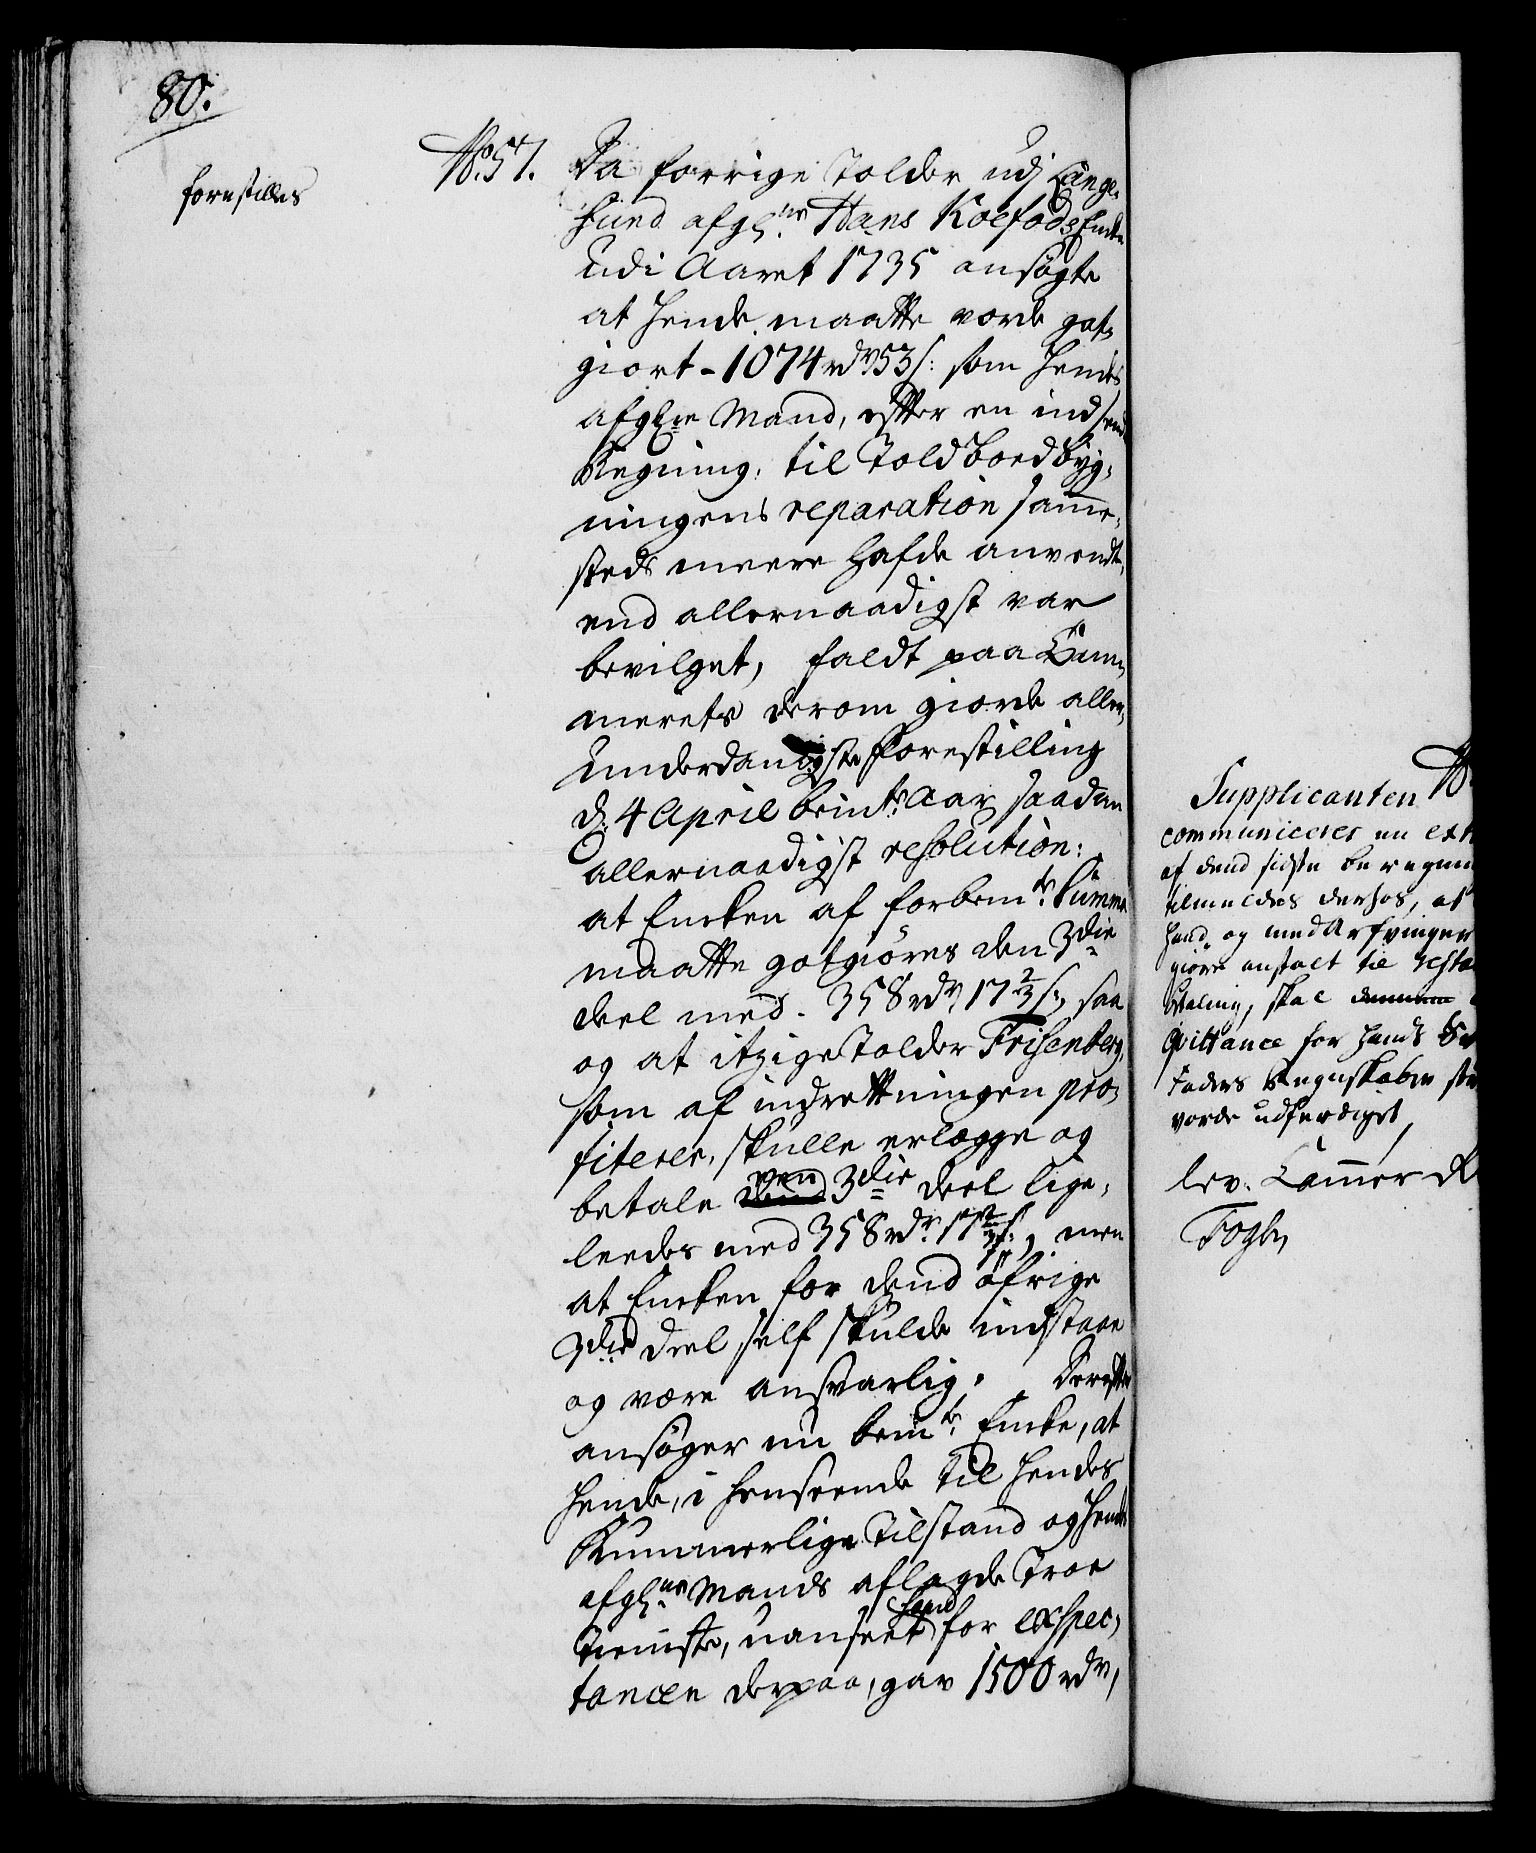 80.
forestilles
No. 57. Da forrige Tolder udj Lange-
sund afg: Hans Koefods Encke
udi Aaret 1735 ansøgte
at hende maatte vorde got-
giort - 1074 rdr 53 s: som hendes
afgne Mand, efter en indsend
Regning, til Toldboed byg-
ningens reparation samme-
steds meere hafde anvendt,
end allernaadigst var
bevilget, faldt paa Cam-
merets derom giorde aller-
underdanigste Forestilling
d: 4 April bemte Aar saadan
allernaadigst resolution:
at Encken af forbemte Summa
maatte gotgiøres den 3die
deel med 358 rdr 17 2/3 s:, saa
og at itzige Tolder Frisenberg,
som af indrettningen pro-
fiterer, skulle erlægge og
betale een 3die deel lige-
leedes med 358 rdr 17 2/3 s:, men
at Encken for dend øfrige
3die deel self skulde indstaae
og være ansvarlig. Derefter
ansøger nu bemte Encke, at
hende, i henseende til hendes
Kummerlige Tilstand og hendes
afgne Mands aflagde Troe
Tieniste, uanseet hand for exspec-
tancen derpaa, gav 1500 rdr,
Supplicanten
communiceres en ext
af dend sidste beregnin
tilmeldes derhos, at
hand og med Arfvinger
giøre anstalt til resta
betaling, skal
Qvittance for hands
Faders Regnskaber
vorde udferdiget,
lev. Cammer R
Fogh